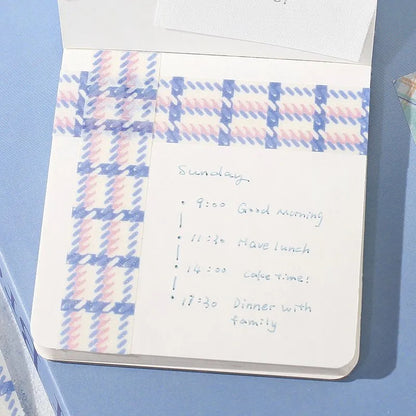 Sunday
• 9:00 Good Morning
• 11:30 Have lunch
• 14:00 Cake time!
• 17:30 Dinner with
family